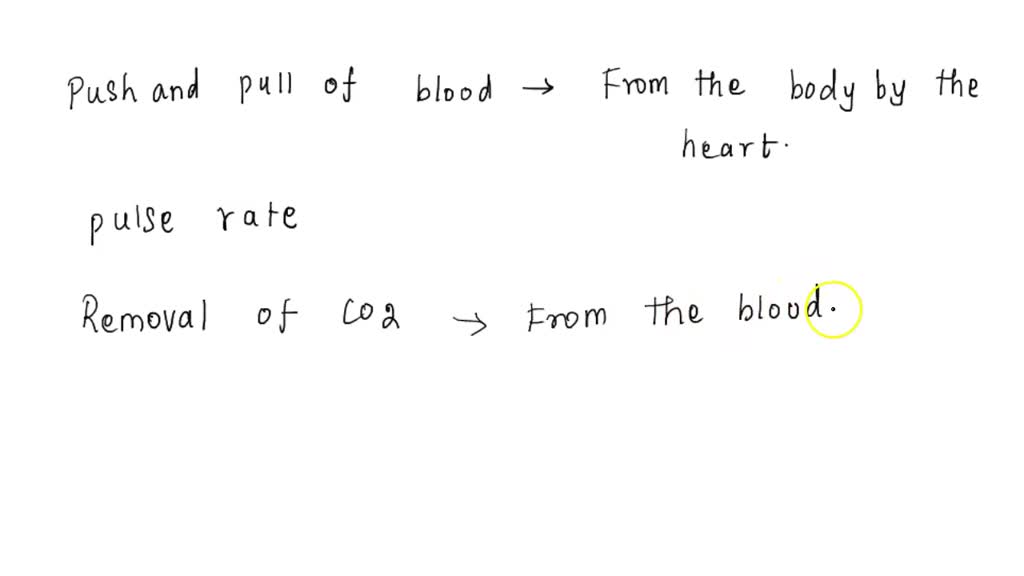 Push and pull of blood → From the body by the
heart.
pulse rate
Removal of CO2 → From the blood.